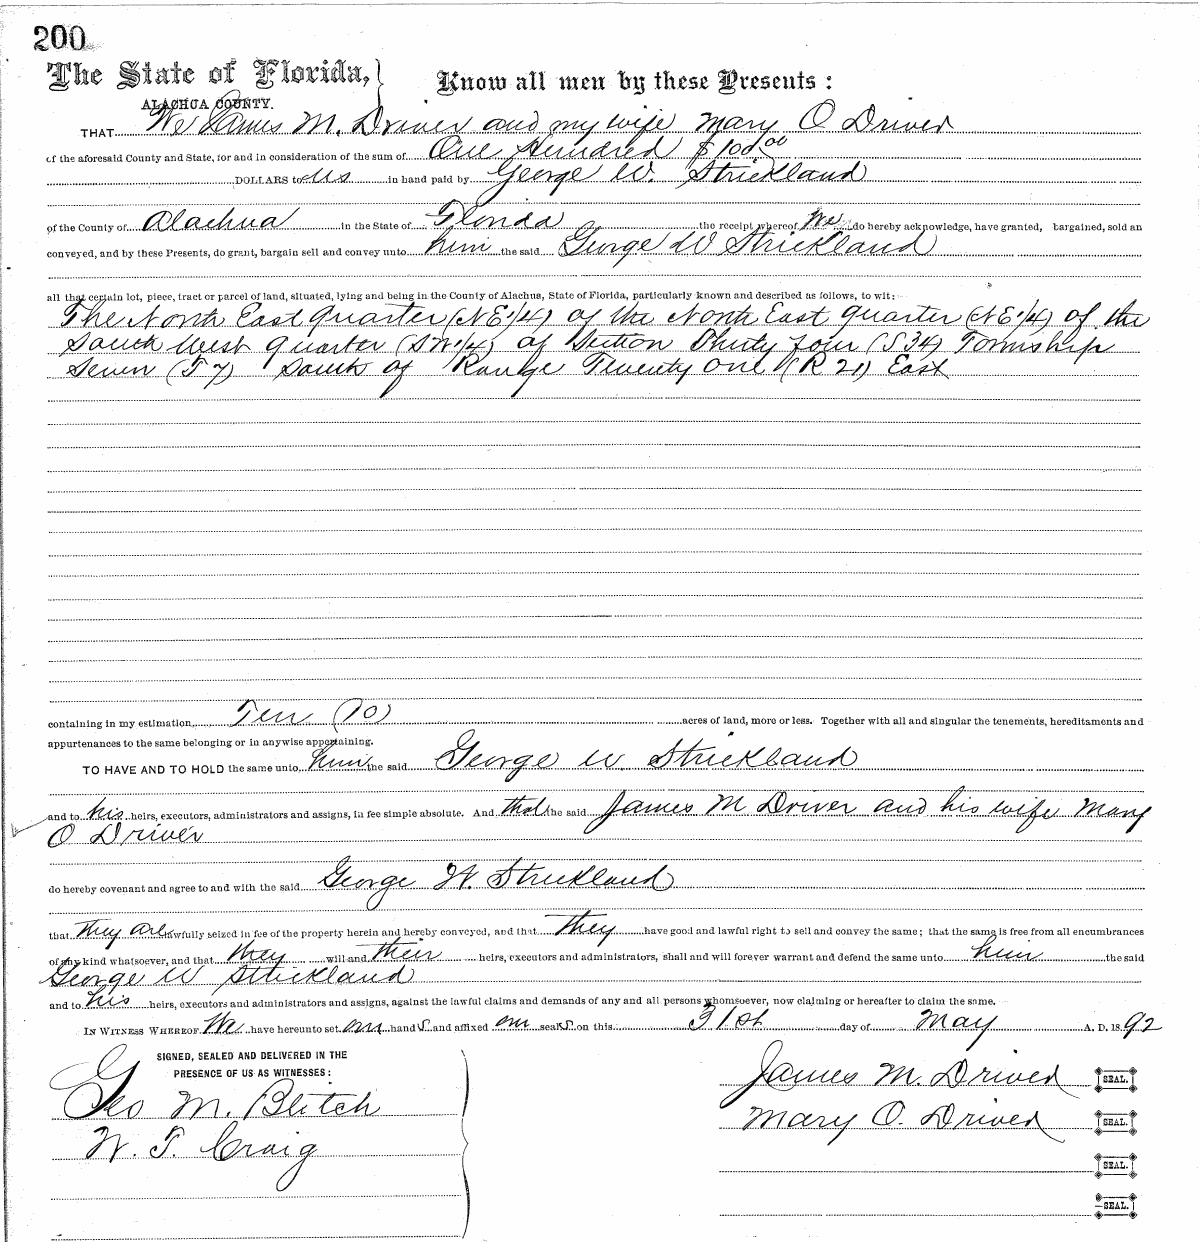 200
The State of Florida, } Know all men by these Presents:
ALACHUA COUNTY.
THAT We James M. Driver and my wife Mary O Driver
of the aforesaid County and State, for and in consideration of the sum of One Hundred $100.00
DOLLARS to us in hand paid by George W. Strickland
of the County of Alachua in the State of Florida the receipt whereof we do hereby acknowledge, have granted, bargained, sold an
conveyed, and by these Presents, do grant, bargain sell and convey unto him the said George W Strickland
all that certain lot, piece, tract or parcel of land, situated, lying and being in the County of Alachua, State of Florida, particularly known and described as follows, to wit:
The North East quarter (NE1/4) of the North East quarter (NE1/4) of the
South West quarter (SW1/4) of Section Thirty four (S34) Township
Seven (T7) South of Range Twenty One (R 21) East
containing in my estimation, Ten (10) acres of land, more or less. Together with all and singular the tenements, hereditaments and
appurtenances to the same belonging or in anywise appertaining.
TO HAVE AND TO HOLD the same unto him the said George W. Strickland
and to his heirs, executors, administrators and assigns, in fee simple absolute. And that the said James M Driver and his wife Mary
O Driver
do hereby covenant and agree to and with the said George W. Strickland
that they are lawfully seized in fee of the property herein and hereby conveyed, and that they have good and lawful right to sell and convey the same; that the same is free from all encumbrances
of any kind whatsoever, and that they will and their heirs, executors and administrators, shall and will forever warrant and defend the same unto him the said
George W Strickland
and to his heirs, executors and administrators and assigns, against the lawful claims and demands of any and all persons whomsoever, now claiming or hereafter to claim the same.
IN WITNESS WHEREOF We have hereunto set our hand s and affixed our seal s on this 31st day of May A. D. 1892
SIGNED, SEALED AND DELIVERED IN THE
PRESENCE OF US AS WITNESSES:
Geo M. Blitch
W. T. Craig
James M. Driver SEAL.
Mary O. Driver SEAL.
SEAL.
SEAL.